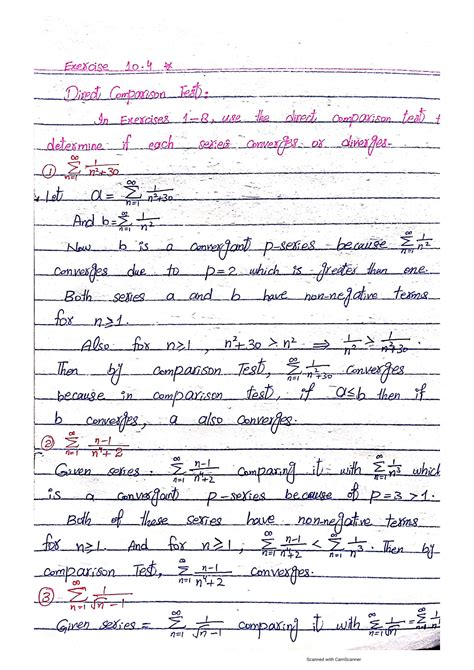 Exercise 10.4 *
Direct Comparison Test:
In Exercises 1-8, use the direct comparison test t
determine if each series converges or diverges.
① ∞∑n=1 1/n²+30
Let a = ∞∑n=1 1/n²+30
And b = ∞∑n=1 1/n²
Now b is a convergant p-series because ∞∑n=1 1/n²
converges due to p=2 which is greater than one.
Both series a and b have non-negative terms
for n≥1.
Also for n≥1, n²+30 > n² ⇒ 1/n² > 1/n²+30.
Then by comparison Test, ∞∑n=1 1/n²+30 converges
because in comparison test, if a≤b then if
b converges, a also converges.
② ∞∑n=1 n-1/n⁴+2
Given series. ∞∑n=1 n-1/n⁴+2 comparing it with ∞∑n=1 1/n³ which
is a convergant p-series because of p=3>1.
Both of these series have non-negative terms
for n≥1. And for n≥1, ∞∑n=1 n-1/n⁴+2 < ∞∑n=1 1/n³. Then by
comparison Test, ∞∑n=1 n-1/n⁴+2 converges.
③ ∞∑n=1 1/√n-1
Given series = ∞∑n=1 1/√n-1 comparing it with ∞∑n=1 1/√n = ∞∑n=1
Scanned with CamScanner